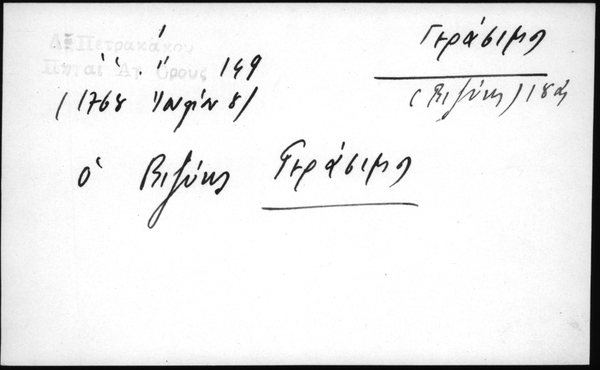 Δ. Πετρακάκου
Πηγαί Ἁγ. Ὄρους 149
(1768 Ἰουνίου 8)
Γεράσιμος
(Βιζύης) 18ος
ὁ Βιζύης Γεράσιμος